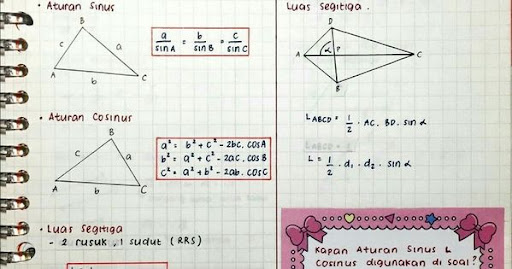 • Aturan Sinus
B
c
a
A
b
C
a/sin A = b/sin B = c/sin C
• Aturan Cosinus
B
c
a
A
b
C
a² = b² + c² - 2bc. cos A
b² = a² + c² - 2ac. cos B
c² = a² + b² - 2ab. cos C
• Luas Segitiga
- 2 rusuk, 1 sudut (RRS)
Luas Segitiga.
D
A
α
P
C
B
L ABCD = 1/2 . AC. BD. sin α
L = 1/2 . d₁ . d₂ . sin α
Kapan Aturan Sinus L
Cosinus digunakan di soal?